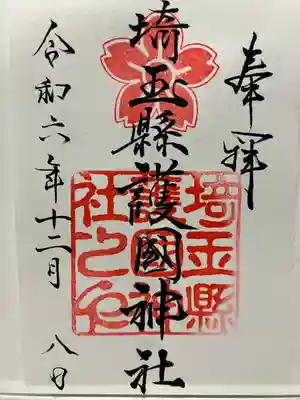 奉拝
埼玉縣護國神社
埼玉縣
護國神
社之印
令和六年十二月八日